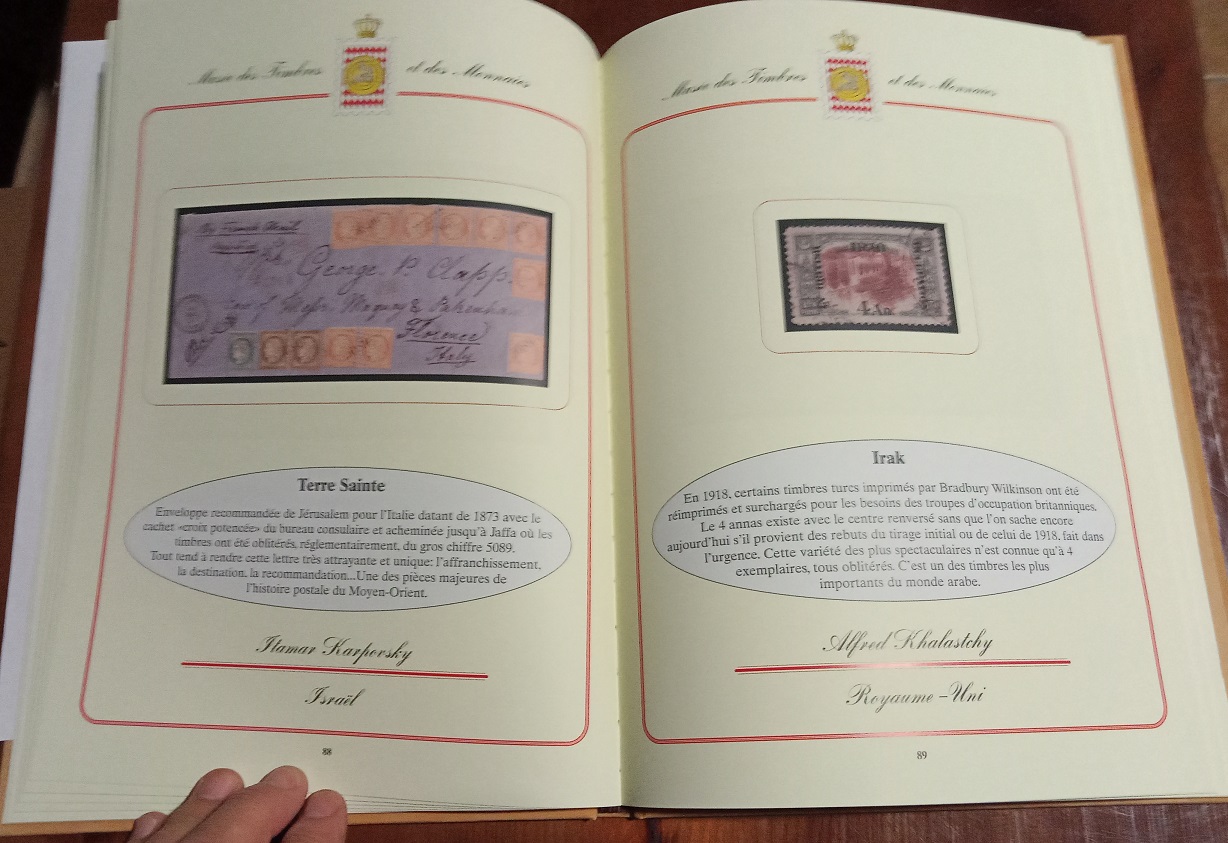 Musée des Timbres et des Monnaies
George. P. Clapp.
Florence
Italy
Terre Sainte
Enveloppe recommandée de Jérusalem pour l'Italie datant de 1873 avec le
cachet «croix potencée» du bureau consulaire et acheminée jusqu'à Jaffa où les
timbres ont été oblitérés, réglementairement, du gros chiffre 5089.
Tout tend à rendre cette lettre très attrayante et unique: l'affranchissement,
la destination, la recommandation...Une des pièces majeures de
l'histoire postale du Moyen-Orient.
Itamar Karpovsky
Israël
88
Musée des Timbres et des Monnaies
4 An
Irak
En 1918, certains timbres turcs imprimés par Bradbury Wilkinson ont été
réimprimés et surchargés pour les besoins des troupes d'occupation britanniques.
Le 4 annas existe avec le centre renversé sans que l'on sache encore
aujourd'hui s'il provient des rebuts du tirage initial ou de celui de 1918, fait dans
l'urgence. Cette variété des plus spectaculaires n'est connue qu'à 4
exemplaires, tous oblitérés. C'est un des timbres les plus
importants du monde arabe.
Alfred Khalastchy
Royaume-Uni
89